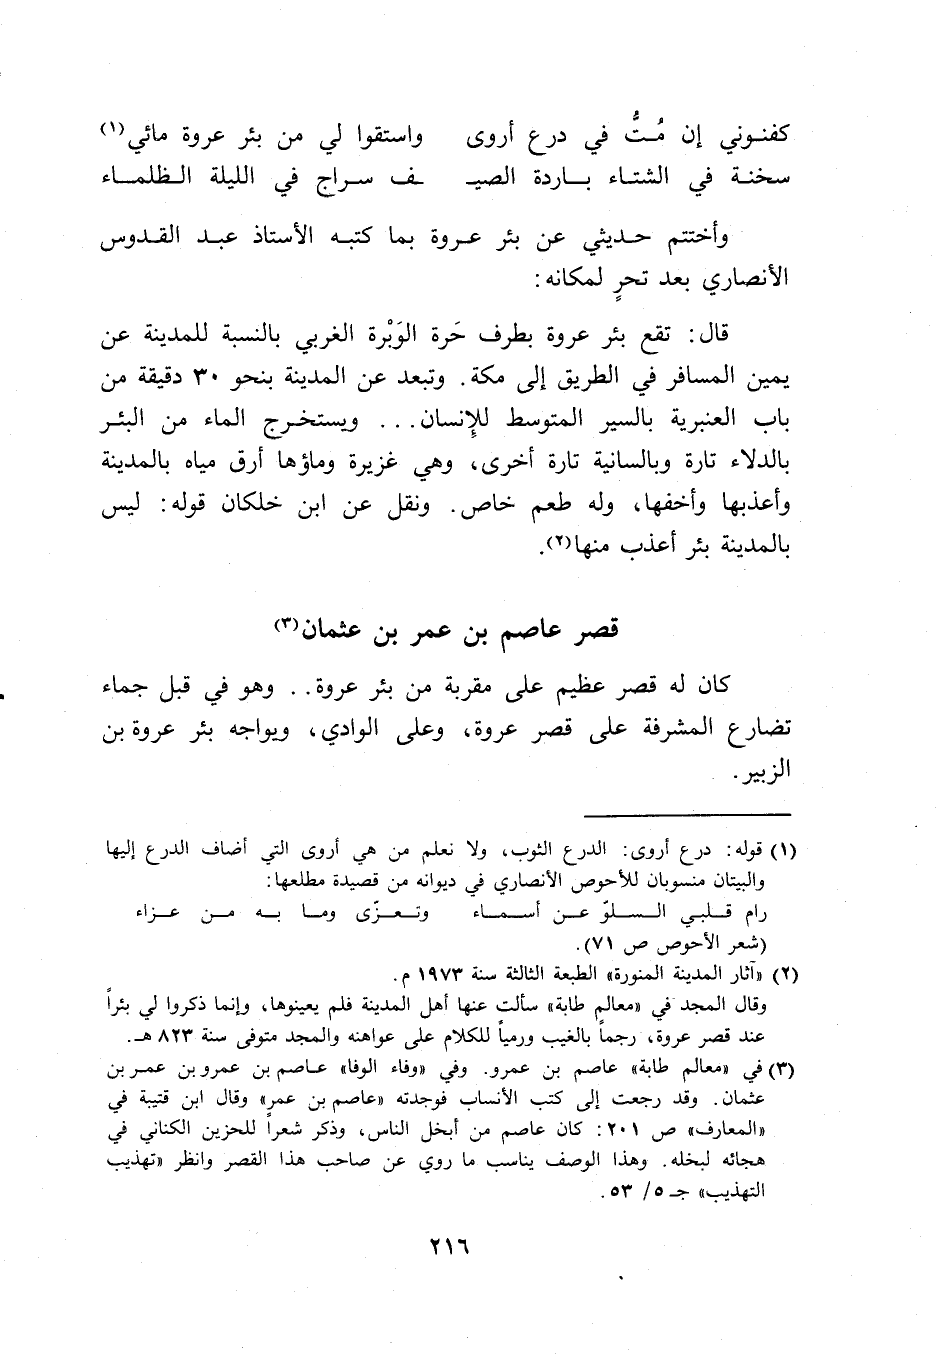 كفنـوني إن مُـتُّ في درع أروى واستقوا لي من بئر عروة مائي(١)
سخنـة في الشتـاء بـاردة الصيـ ـف سـراج في الليلة الـظلمـاء
وأختتم حـديثي عن بئر عـروة بما كتبـه الأستاذ عبـد القـدوس
الأنصاري بعد تحرٍ لمكانه:
قال: تقع بئر عروة بطرف حَرة الوَبْرة الغربي بالنسبة للمدينة عن
يمين المسافر في الطريق إلى مكة. وتبعد عن المدينة بنحو ٣٠ دقيقة من
باب العنبرية بالسير المتوسط للإِنسان... ويستخـرج الماء من البئـر
بالدلاء تارة وبالسانية تارة أخرى، وهي غزيرة وماؤها أرق مياه بالمدينة
وأعذبها وأخفها، وله طعم خاص. ونقل عن ابن خلكان قوله: ليس
بالمدينة بئر أعذب منها(٢).
قصر عاصم بن عمر بن عثمان(٣)
كان له قصر عظيم على مقربة من بئر عروة.. وهو في قبل جماء
تضارع المشرفة على قصر عروة، وعلى الوادي، ويواجه بئر عروة بن
الزبير.
(١) قوله: درع أروى: الدرع الثوب، ولا نعلم من هي أروى التي أضاف الدرع إليها
والبيتان منسوبان للأحوص الأنصاري في ديوانه من قصيدة مطلعها:
رام قـلبـي الـسـلوّ عـن أسـمـاء وتـعـزّى ومـا بـه مـن عـزاء
(شعر الأحوص ص ٧١).
(٢) «آثار المدينة المنورة» الطبعة الثالثة سنة ١٩٧٣ م.
وقال المجد في «معالم طابة» سألت عنها أهل المدينة فلم يعينوها، وإنما ذكروا لي بئراً
عند قصر عروة، رجماً بالغيب ورمياً للكلام على عواهنه والمجد متوفى سنة ٨٢٣ هـ.
(٣) في «معالم طابة» عاصم بن عمرو. وفي «وفاء الوفا» عـاصم بن عمرو بن عمـر بن
عثمان. وقد رجعت إلى كتب الأنساب فوجدته «عاصم بن عمر» وقال ابن قتيبة في
«المعارف» ص ٢٠١: كان عاصم من أبخل الناس، وذكر شعراً للحزين الكناني في
هجائه لبخله. وهذا الوصف يناسب ما روي عن صاحب هذا القصر وانظر «تهذيب
التهذيب» جـ ٥/ ٥٣.
٢١٦